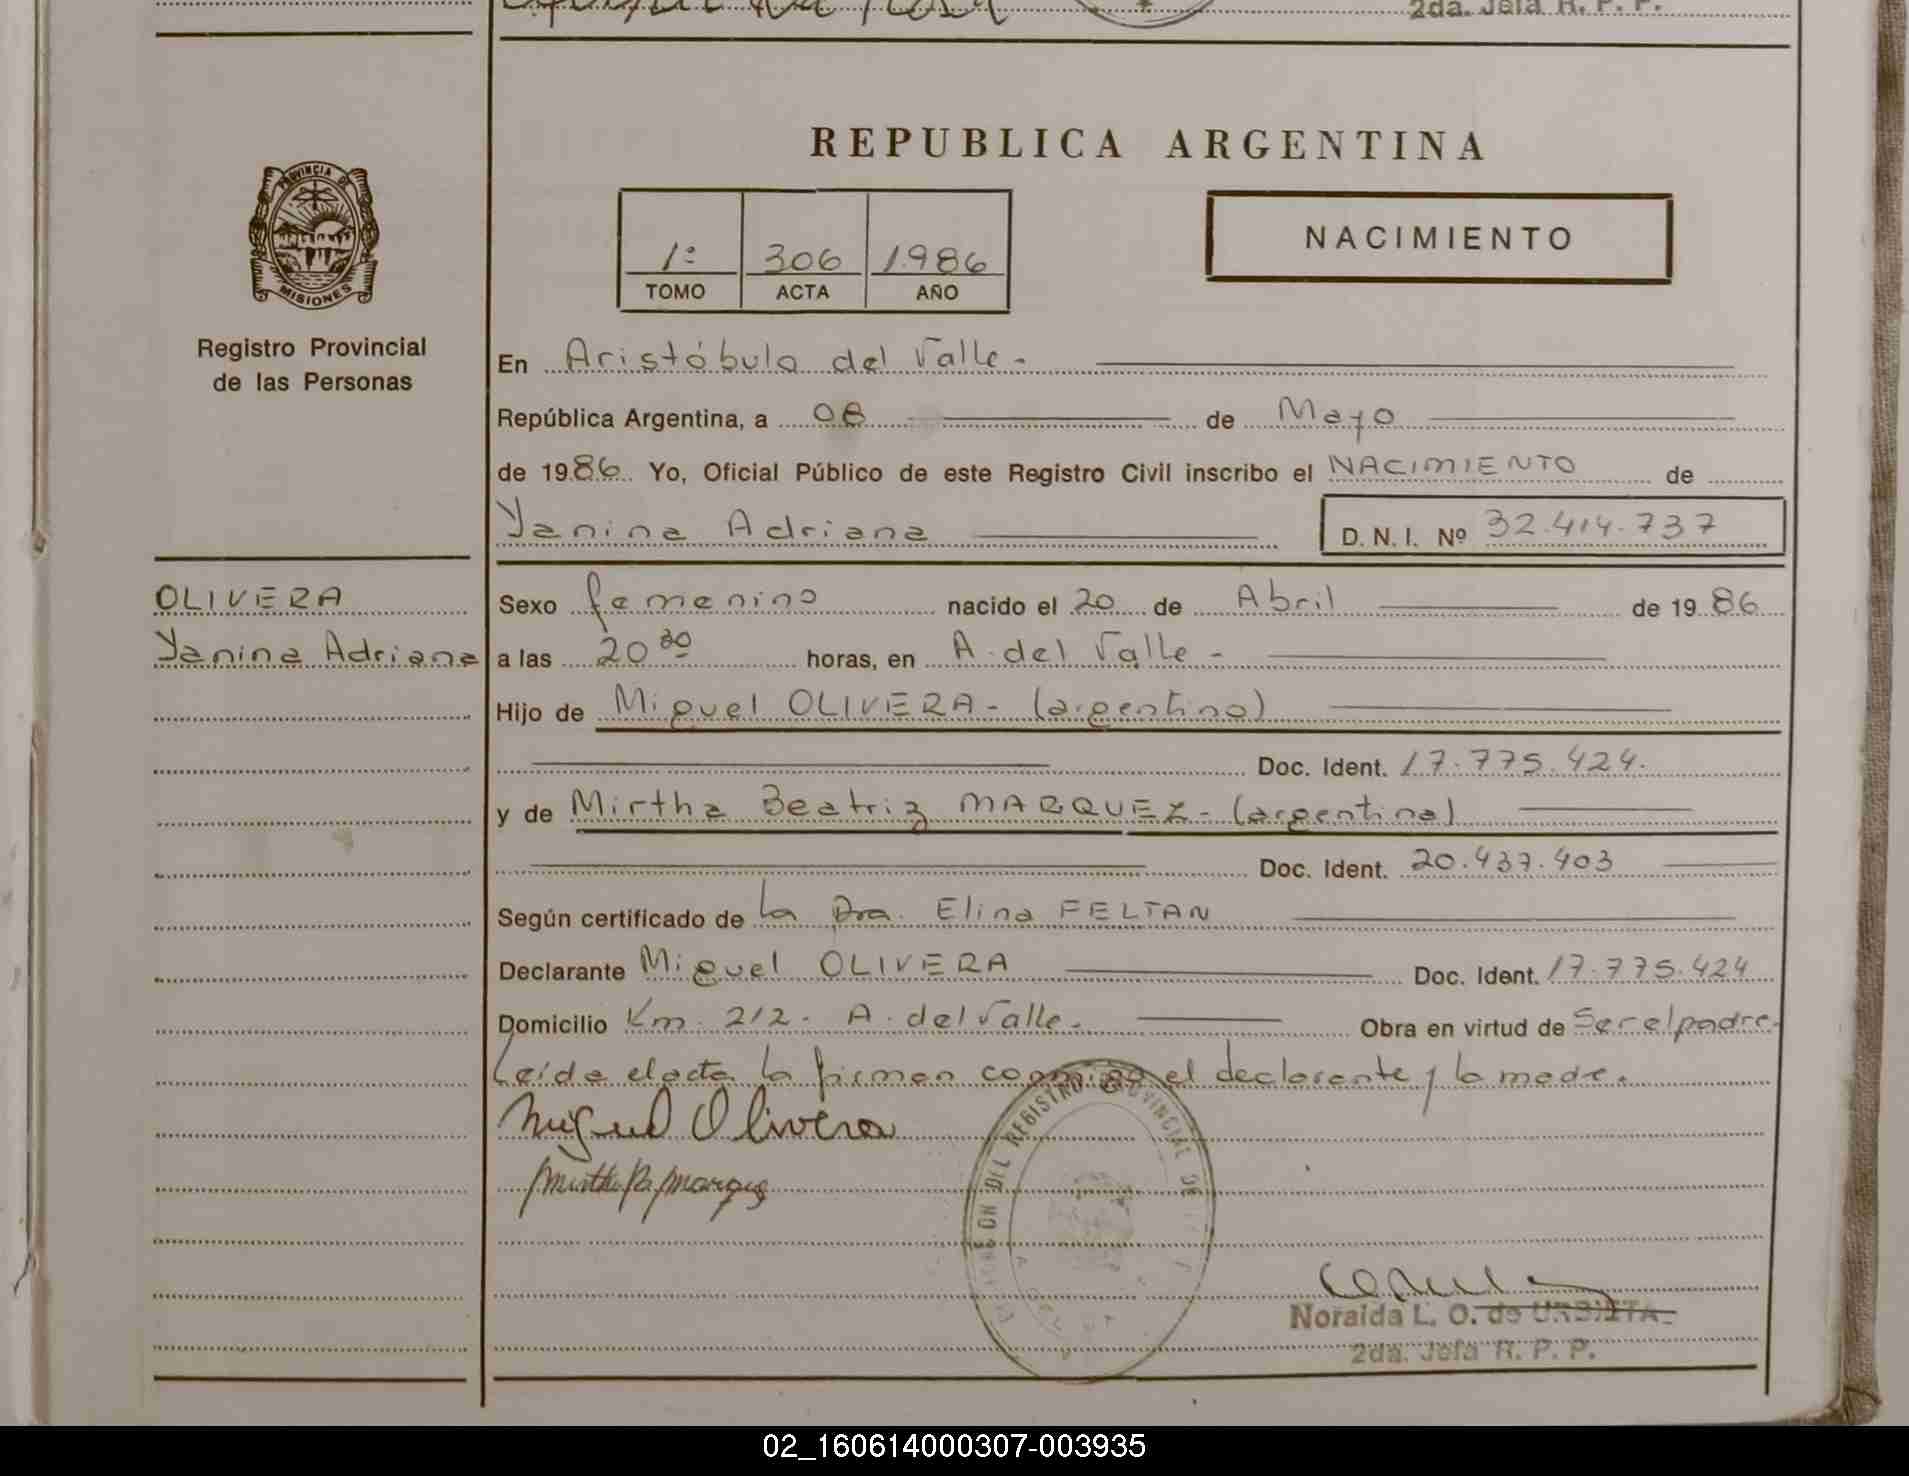 2da. Jefa R. P. P.
REPUBLICA ARGENTINA
PROVINCIA DE
MISIONES
Registro Provincial
de las Personas
1º 306 1986
TOMO ACTA AÑO
NACIMIENTO
En Aristóbulo del Valle.-
República Argentina, a 08 de Mayo
de 1986 Yo, Oficial Público de este Registro Civil inscribo el NACIMIENTO de
Yanina Adriana D. N. I. Nº 32.414.737
OLIVERA
Yanina Adriana
Sexo femenino nacido el 20 de Abril de 1986
a las 20 30 horas, en A. del Valle -
Hijo de Miguel OLIVERA - (argentino)
Doc. Ident. 17.775.424.
y de Mirtha Beatriz MARQUEZ - (argentina)
Doc. Ident. 20.437.403
Según certificado de la Dra. Elina FELTAN
Declarante Miguel OLIVERA Doc. Ident. 17.775.424
Domicilio Km. 212. A. del Valle. Obra en virtud de Ser el padre.
Leída el acta la firman conmigo el declarante y la madre.
Miguel Olivera
Mirtha B. Marquez
DEL REGISTRO PROVINCIAL DE
Noralda L. O. de URBIETA
2da. Jefa R. P. P.
02_160614000307-003935